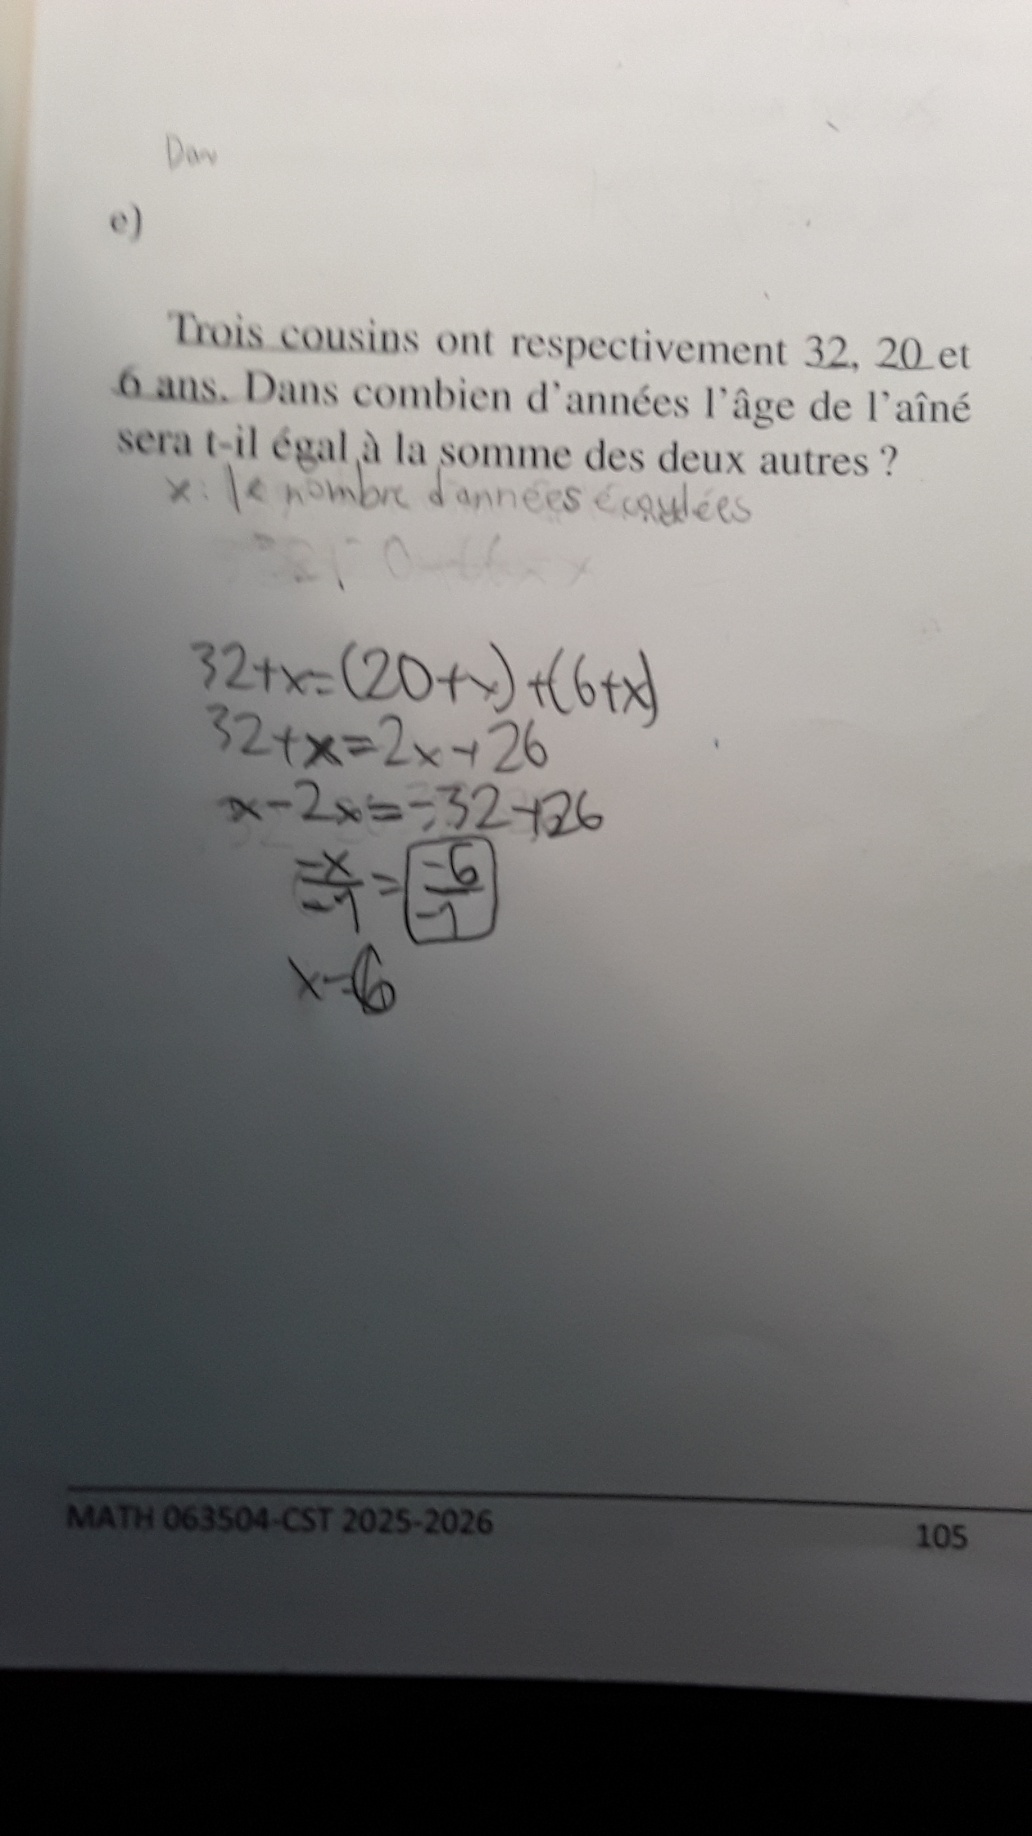 e)
Trois cousins ont respectivement 32, 20 et
6 ans. Dans combien d'années l'âge de l'aîné
sera t-il égal à la somme des deux autres ?
x: le nombre d'années écoulées
32+x=(20+x)+(6+x)
32+x=2x+26
x-2x=-32+26
-x/-1=-6/-1
x=6
MATH 063504-CST 2025-2026
105